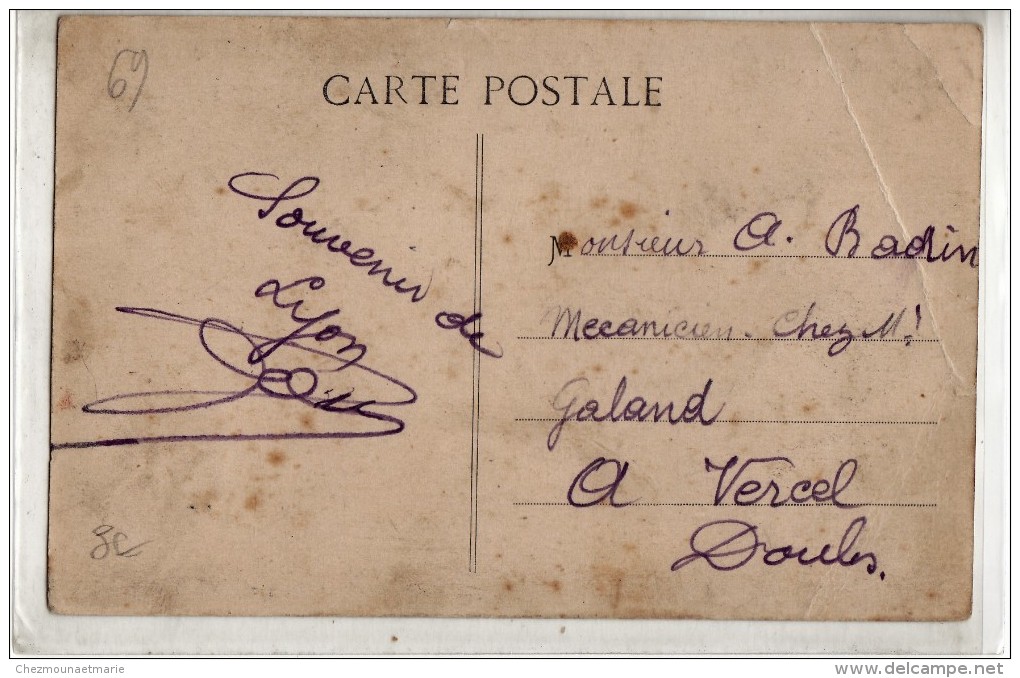 69
CARTE POSTALE
Souvenir de
Lyon
Louis
Monsieur A. Badin
Mecanicien - Chez Mr
Galand
A Vercel
Doubs.
Chezmounaetmarie
www.delcampe.net